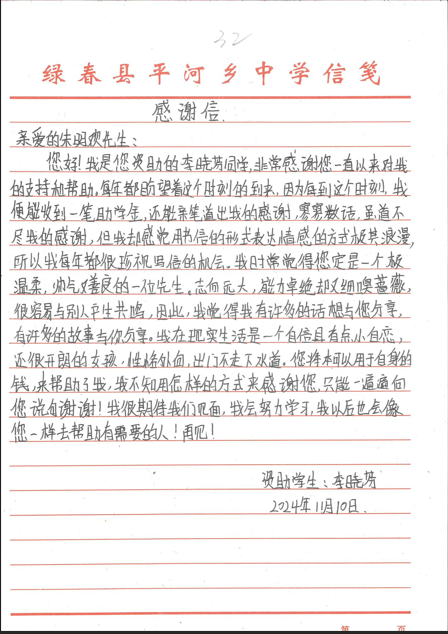 32
绿春县平河乡中学信笺
感谢信
亲爱的朱明欢先生：
您好！我是您资助的李晓芳同学，非常感谢您一直以来对我
的支持和帮助，每年都盼望着这个时刻的到来，因为每到这个时刻，我
便能收到一笔助学金，还能亲笔道出我的感谢，寥寥数语，虽道不
尽我的感谢，但我却感觉用书信的形式表达情感的方式极其浪漫，
所以我每年都很珍视写信的机会。我时常觉得您定是一个极
温柔，帅气又善良的一位先生。志向远大，能力卓绝却又细嗅蔷薇，
很容易与别人产生共鸣，因此，我觉得我有许多的话想与您分享，
有许多的故事与你分享。我在现实生活是一个自信且有点小自恋，
还很开朗的女孩，性格外向，出门不走下水道。您将本可以用于自身的
钱，来帮助了我，我不知用怎样的方式来感谢您，只能一遍遍向
您说句谢谢！我很期待我们见面，我会努力学习，我以后也会像
您一样去帮助有需要的人！再见！
资助学生：李晓芳
2024年11月10日.
第 页